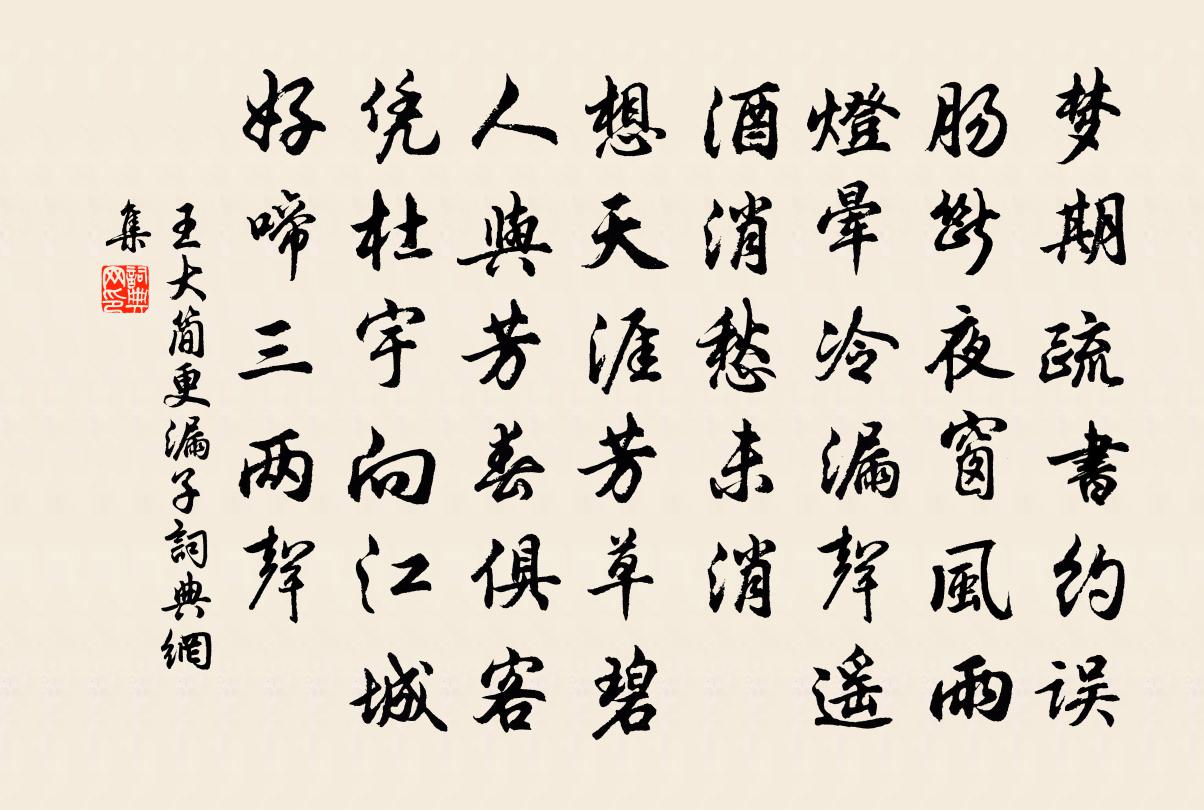 梦期疏书约误
肠断夜窗風雨
燈晕冷漏聲遥
酒消愁未消
想天涯芳草碧
人與芳春俱客
凭杜宇向江城
好啼三两聲
王大简更漏子詞典網
集
詞典网印